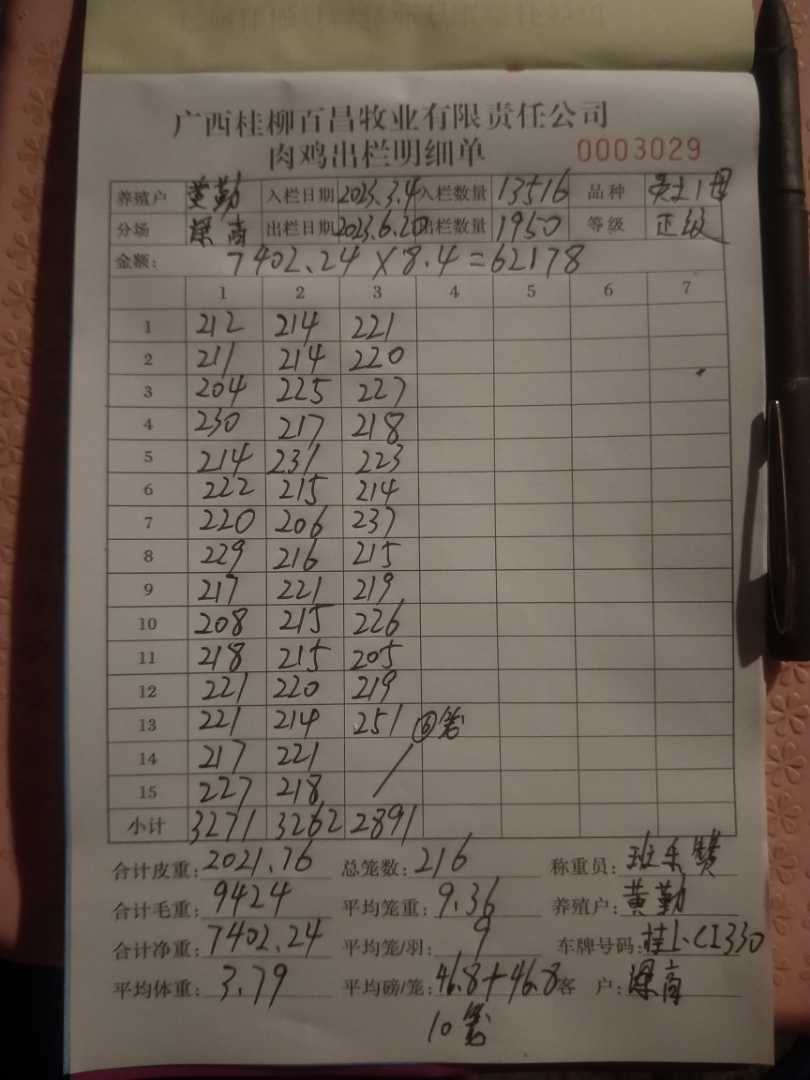 广西桂柳百昌牧业有限责任公司
肉鸡出栏明细单 0003029
养殖户 黄勤 入栏日期 2023.3.4 入栏数量 13516 品种
分场 深高 出栏日期 2023.6.20 出栏数量 1950 等级 正级
金额: 7402.24×8.4=62178
1 2 3 4 5 6 7
1 212 214 221
2 211 214 220
3 204 225 227
4 230 217 218
5 214 231 223
6 222 215 214
7 220 206 237
8 229 216 215
9 217 221 219
10 208 215 226
11 218 215 205
12 221 220 219
13 221 214 251 ⑥笼
14 217 221
15 227 218
小计 3271 3262 2891
合计皮重: 2021.76 总笼数: 216 称重员:
合计毛重: 9424 平均笼重: 9.36 养殖户: 黄勤
合计净重: 7402.24 平均笼/羽: 9 车牌号码: 桂L·CI330
平均体重: 3.79 平均磅/笼: 46.8+46.8 客 户: 深高
10笼